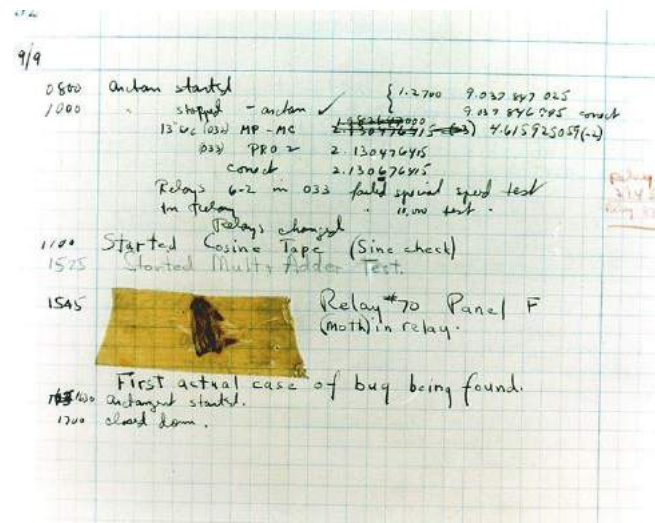 9/9
0800 Antan started { 1.2700 9.037 847 025
1000 " stopped - antan ✓ 9.037 846 995 conect
13"uc (032) MP-MC 1.982647000 2.130476415 (-3) 4.615925059(-2)
(033) PRO 2 2.130476415
conect 2.130676415
Relays 6-2 in 033 failed special speed test
in relay " 10,000 test .
Relays changed
1100 Started Cosine Tape (Sine check)
1525 Started Mult + Adder Test.
1545 Relay #70 Panel F
(Moth) in relay.
First actual case of bug being found.
1630 antangent started.
1700 closed down.
Relay